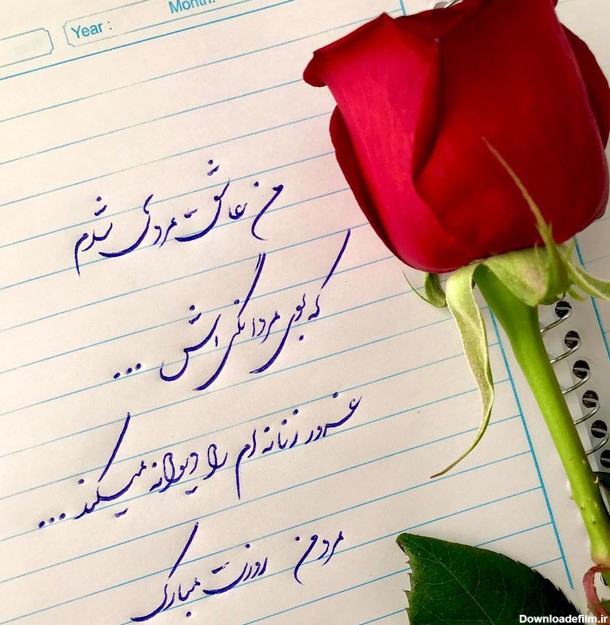 Year :
Month:
من عاشق مردی شدم
که بوی مردانگی اش ...
غرور زنانه ام را دیوانه میکند ...
مرد من روزت مبارک
Downloadefilm.ir